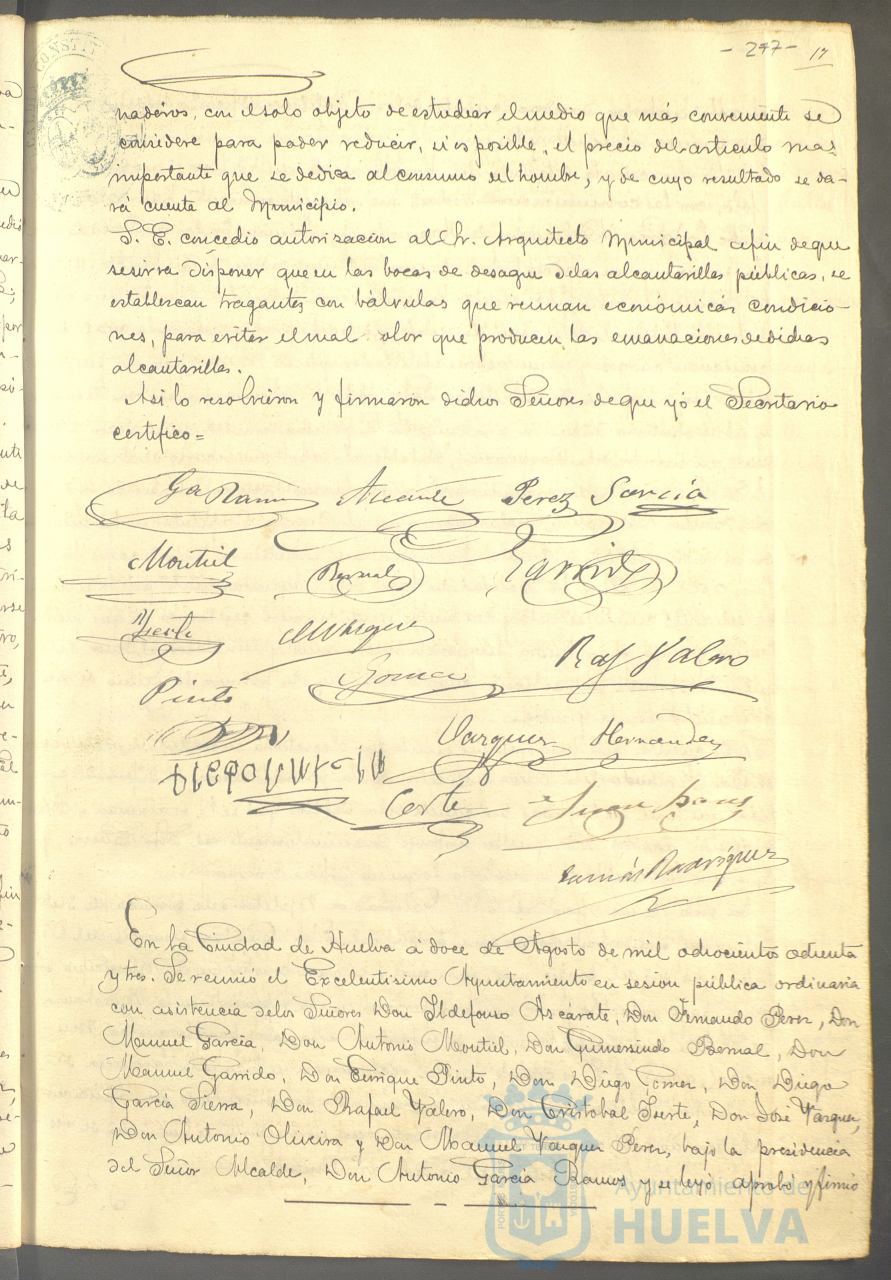 - 247 - 17
naderos, con el solo objeto de estudiar el medio que más conveniente se
considere para poder reducir, si es posible, el precio del articulo mas
importante que se dedica al consumo del hombre, y de cuyo resultado se da-
rá cuenta al Municipio.
S. E. concedio autorizacion al Sr. Arquitecto Municipal afin de que
se sirva disponer que en las bocas de desague de las alcantarillas públicas, se
establescan tragantes con bálvulas que reunan económicas condicio-
nes, para evitar el mal olor que producen las emanaciones de dichas
alcantarillas.
Asi lo resolvieron y firmaron dichos Señores de que yó el Secretario
certifico =
Ga Ramos Azcárate Perez Garcia
Montiel Bernal Garrido
Yserte MVazquez
Pinto Gomez Raf Valero
Vazquez Hernandez
Corte
Tomás Rodriguez
En la Ciudad de Huelva á doce de Agosto de mil ochocientos ochenta
y tres. Se reunió el Excelentisimo Ayuntamiento en sesion pública ordinaria
con asistencia de los Señores Don Ildefonso Azcárate, Don Fernando Perez, Don
Manuel Garcia, Don Antonio Montiel, Don Gumersindo Bernal, Don
Manuel Garrido, Don Enrique Pinto, Don Diego Gomez, Don Diego
Garcia Sierra, Don Rafael Valero, Don Cristobal Yserte, Don José Vazquez,
Don Antonio Oliveira y Don Manuel Vazquez Perez, bajo la presidencia
del Señor Alcalde, Don Antonio Garcia Ramos y se leyó aprobó y firmó
Ayuntamiento de
HUELVA